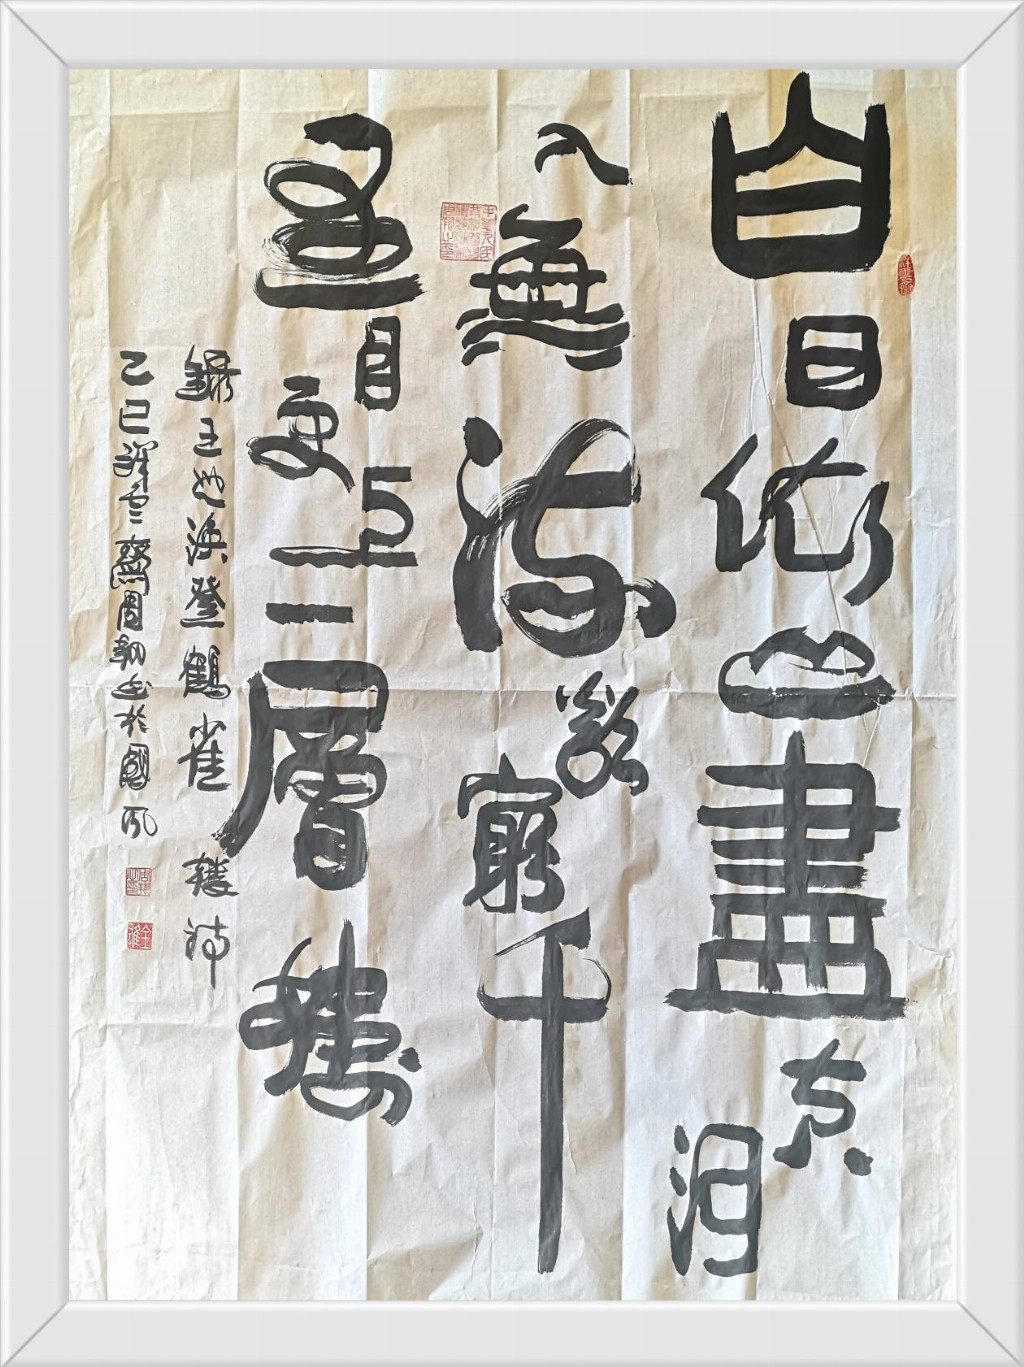 白日依山盡黄河
入海流欲窮千
里目更上一層樓
錄王之渙登鶴雀樓詩
乙巳 雲齋周 書於國風